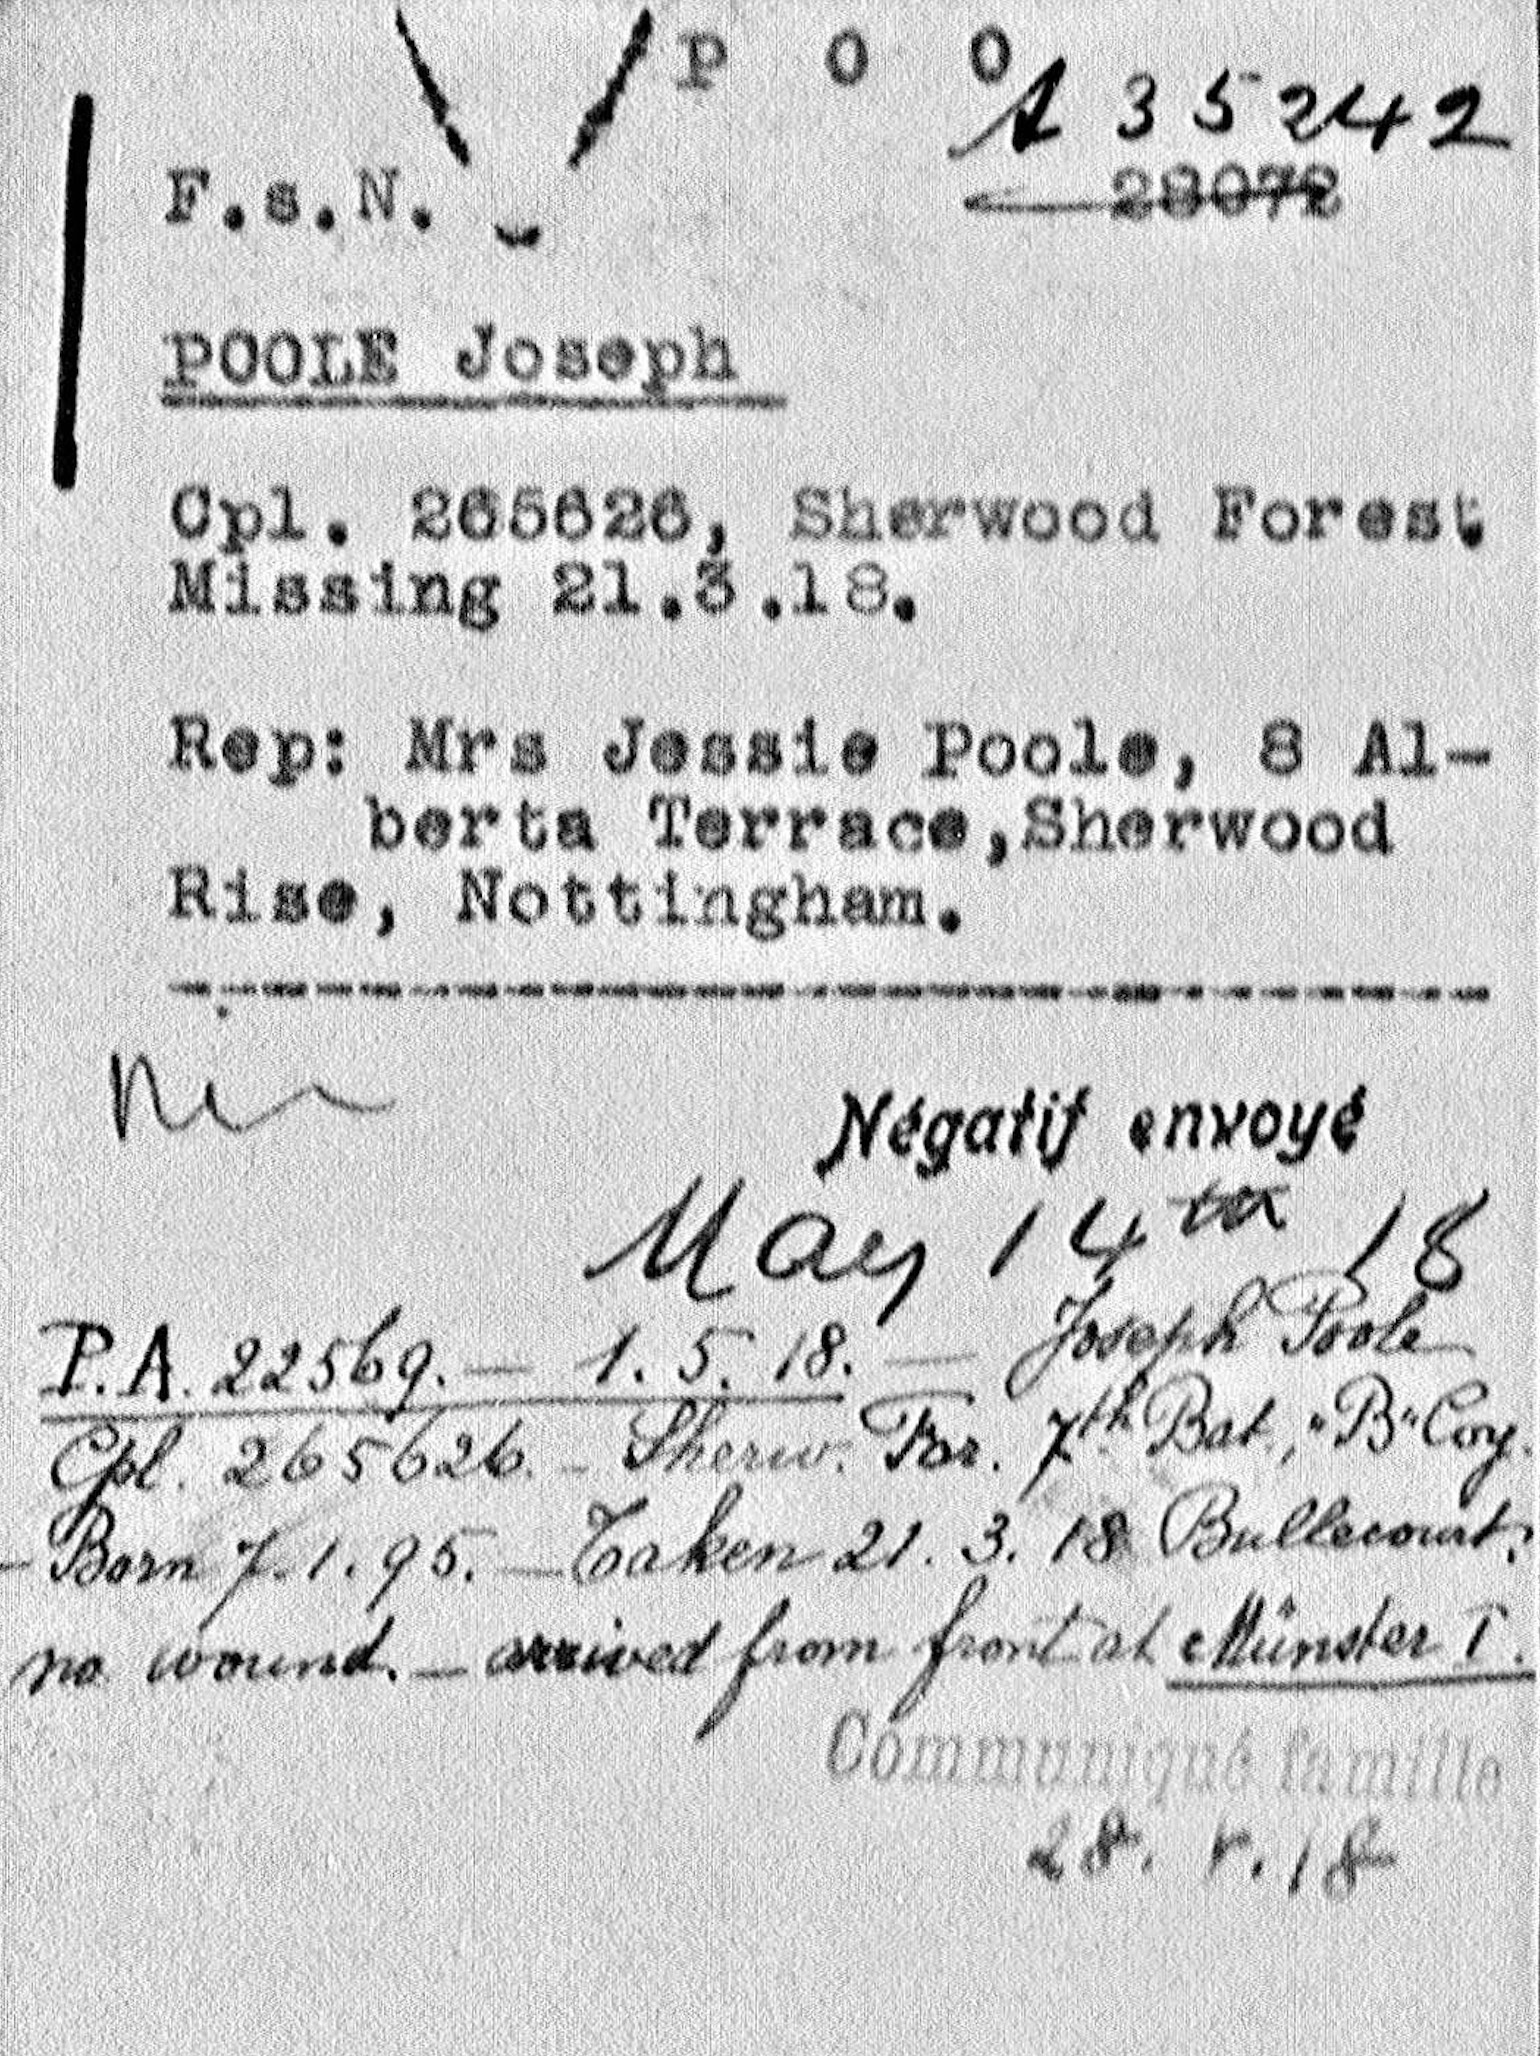 P O O
A 35242
28072
F.s.N.
POOLE Joseph
Cpl. 265626, Sherwood Forest.
Missing 21.3.18.
Rep: Mrs Jessie Poole, 8 Al-
berta Terrace,Sherwood
Rise, Nottingham.
Négatif envoyé
May 14th 18
P.A. 22569. — 1. 5. 18. — Joseph Poole
Cpl. 265626. – Sherw. For. 7th Bat., "B" Coy.
– Born 7.1.95. — Taken 21. 3. 18 Bullecourt;
no wound. — arrived from front at Münster I.
Communiqué famille
28. V. 18